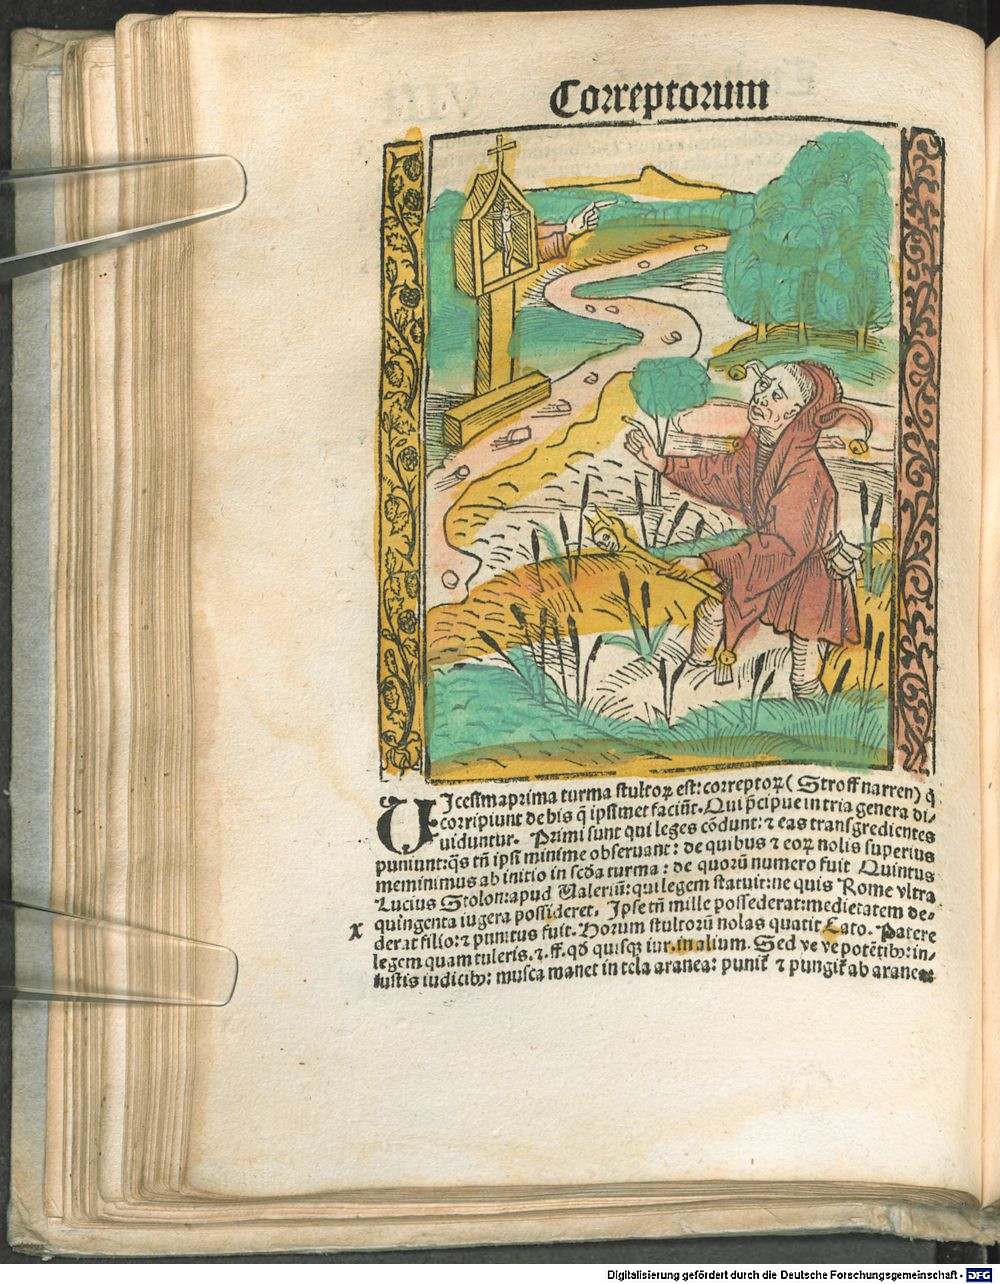 Correptorum
VIcesimaprima turma stultoꝝ est: correptoꝝ ( Stroff narren) q̄
corripiunt de his q̄ ipsimet faciūt. Qui p̄cipue in tria genera di-
uiduntur. Primi sunt qui leges cōdunt: ⁊ eas transgredientes
puniunt: q̄s tn̄ ipsi minime obseruant: de quibus ⁊ eoꝝ nolis superius
meminimus ab initio in scd̄a turma: de quorū numero fuit Quintus
Lucius Stolon: apud Ualeriū: qui legem statuit: ne quis Rome vltra
quingenta iugera possideret. Ipse tn̄ mille possederat: medietatem de-
x derat filio: ⁊ punitus fuit. Horum stultorū nolas quatit Cato. Patere
legem quam tuleris. ⁊. ff. qd̄ quisqꝫ iur. in alium. Sed ve ve potētibꝰ: in-
iustis iudicibꝰ: musca manet in tela aranea: puniť ⁊ pungiť ab aranea:
Digitalisierung gefördert durch die Deutsche Forschungsgemeinschaft - DFG